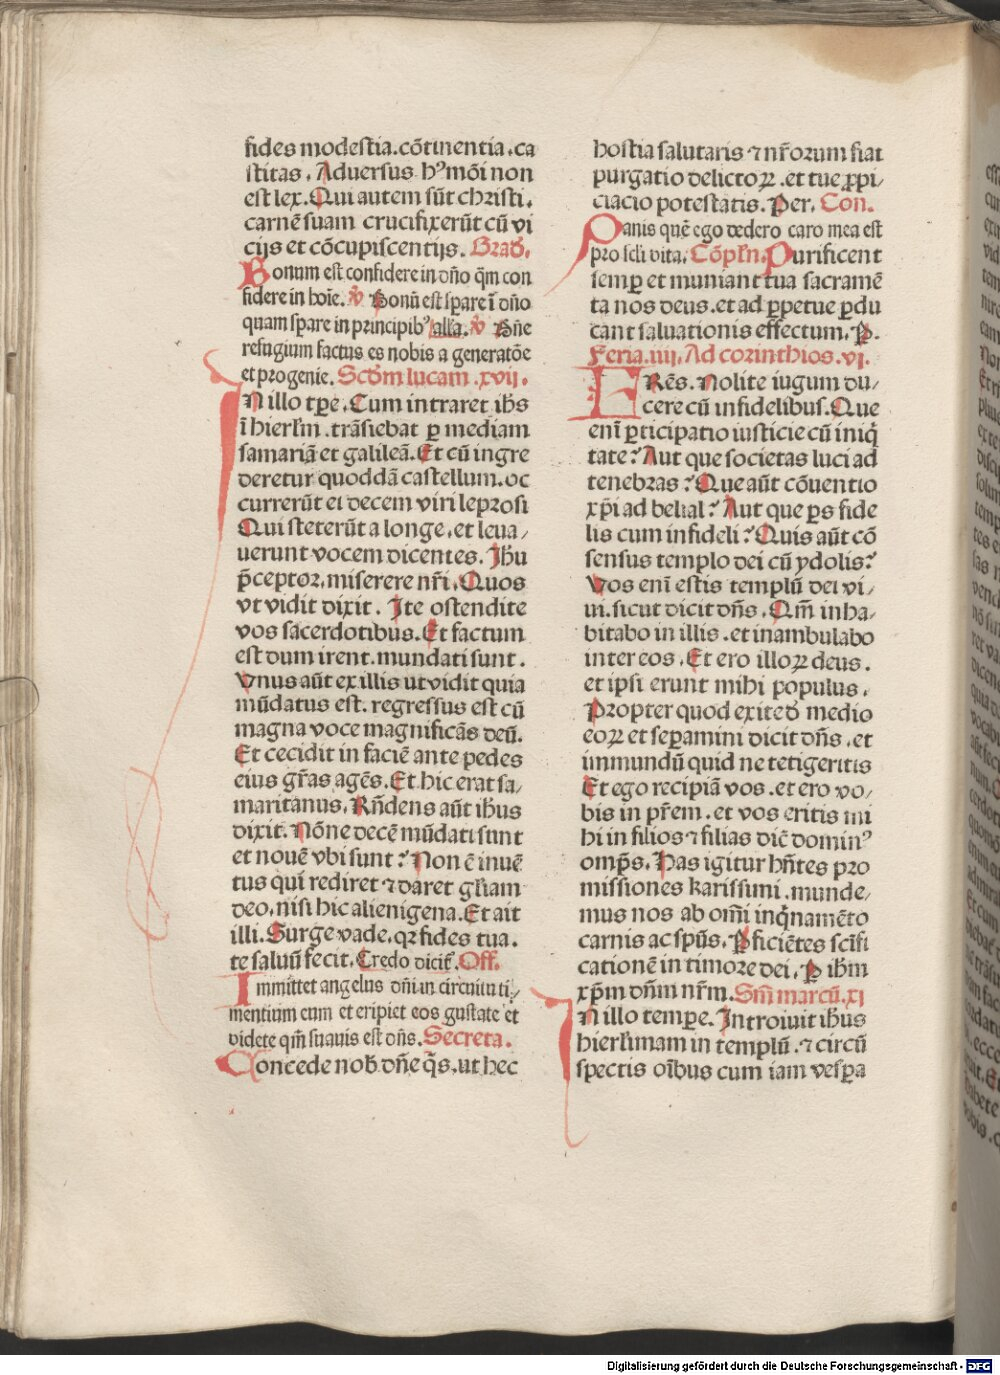 fides modestia.cõtinentia.ca
stitas. Aduersus hꝰmõi non
est lex. Qui autem sũt christi.
carnẽ suam crucifixerũt cũ vi
cijs et cõcupiscentijs. Grad̃.
Bonum est confidere in dño q̃m con
fidere in hoĩe. ℣ Bonũ est sꝑare ĩ dño
quam sꝑare in principibꝰ alla. ℣ Dñe
refugium factus es nobis a generatõe
et progenie. Scd̃m lucam .xvij.
IN illo tꝑe. Cum intraret ihs̃
ĩ hierlm̃. trãsiebat ꝑ mediam
samariã et galileã. Et cũ ingre
deretur quoddã castellum. oc
currerũt ei decem viri leprosi
Qui steterũt a longe. et leua/
uerunt vocem dicentes. Ihũ
p̃ceptor. miserere nr̃i. Quos
vt vidit dixit. Ite ostendite
vos sacerdotibus. Et factum
est dum irent. mundati sunt.
Vnus aũt ex illis ut vidit quia
mũdatus est. regressus est cũ
magna voce magnificãs deũ.
Et cecidit in faciẽ ante pedes
eius gr̃as agẽs. Et hic erat sa/
maritanus. Rñdens aũt ihũs
dixit. Nõne decẽ mũdati sunt
et nouẽ vbi sunt? Non ẽ inuẽ
tus qui rediret ⁊ daret glĩam
deo. nisi hic alienigena. Et ait
illi. Surge vade. qꝛ fides tua.
te saluũ fecit. Credo dicit̃. Off.
Immittet angelus dñi in circuitu ti/
mentium eum et eripiet eos gustate et
videte qm̃ suauis est dñs. Secreta.
Concede nob̃ dñe q̃s. ut hec
hostia salutaris ⁊ nr̃orum fiat
purgatio delictoꝝ. et tue ꝓpi/
ciacio potestatis. Per. Con.
Panis quẽ ego dedero caro mea est
pro scĩi vita. Cõpln̄. Purificent
semꝑ et muniant tua sacramẽ
ta nos deus. et ad ꝑpetue ꝑdu
cant saluationis effectum. P.
Feria .iiij. Ad corinthios .vi.
FRẽs. Nolite iugum du/
cere cũ infidelibus. Que
enĩ ꝑticipatio iusticie cũ iniq̃
tate? Aut que societas luci ad
tenebras? Que aũt cõuentio
xp̃i ad belial? Aut que ꝑs fide
lis cum infideli? Quis aũt cõ
sensus templo dei cũ ydolis?
Vos enĩ estis templũ dei vi/
ui. sicut dicit dñs. Qm̃ inha/
bitabo in illis. et inambulabo
inter eos. Et ero illoꝝ deus.
et ipsi erunt mihi populus.
Propter quod exite d̃ medio
eoꝝ et seꝑamini dicit dñs. et
inmundũ quid ne tetigeritis
Et ego recipiã vos. et ero vo/
bis in pr̃em. et vos eritis mi
hi in filios ⁊ filias dic̃ dominꝰ
omp̃s. Has igitur hñtes pro
missiones karissimi. munde/
mus nos ab om̃i inq̃namẽto
carnis ac spũs. ꝑficiẽtes scĩfi
cationẽ in timore dei. P ihm̃
xp̃m dñm nr̃m. Sm̃ marcũ. xi
IN illo tempe. Introiuit ihũs
hierlmam in templũ. ⁊ circũ
spectis oĩbus cum iam vesꝑa
Digitalisierung gefördert durch die Deutsche Forschungsgemeinschaft - DFG